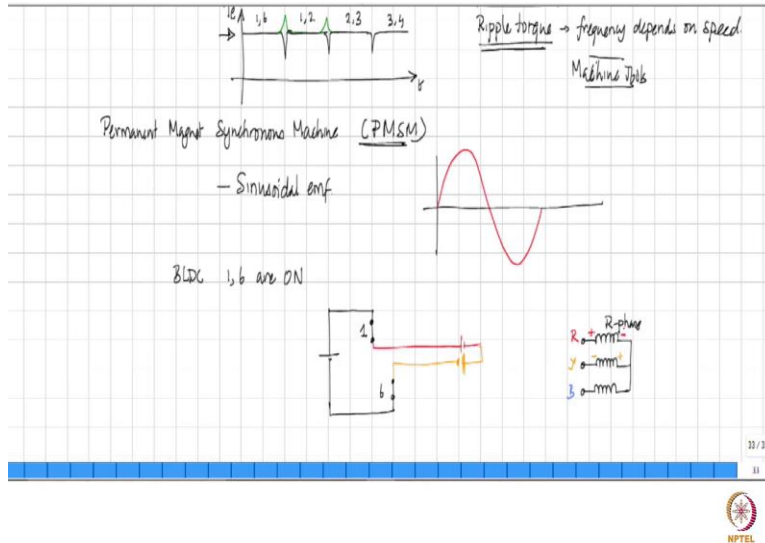 Te 1,6 1,2 2,3 3,4
Ripple torque → frequency depends on speed.
t
Machine Jobs
Permanent Magnet Synchronous Machine (PMSM)
– Sinusoidal emf
BLDC 1,6 are ON
1
R-phase
R + -
Y - +
6
B
33 / 3
33
NPTEL